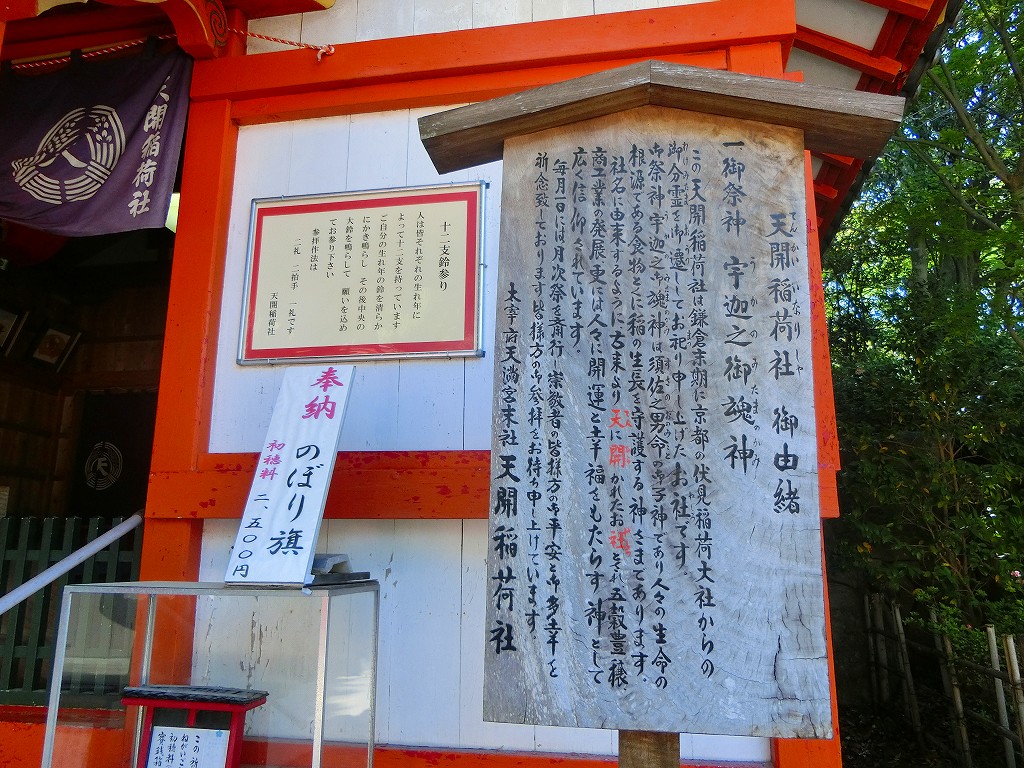 天開稲荷社 御由緒
てんかいいなりしや
一御祭神 宇迦之御魂神
うかのみたまのかみ
この天開稲荷社は鎌倉末期に京都の伏見稲荷大社からの
御分霊を御遷してお祀り申し上げたお社です。
御祭神宇迦之御魂神は須佐之男命の御子神であり人々の生命の
根源である食物とくに稲の生長を守護する神さまであります。
社名に由来するように古来より天に開かれたお社それ五穀豊穣、
商工業の発展、更には人々に開運と幸福をもたらす神として
広く信仰されています。
毎月一日には月次祭を斉行し崇敬者の皆様方の御平安と御多幸を
祈念致しております皆様方の御参拝をお待ち申し上げています。
太宰府天満宮末社 天開稲荷社
十二支鈴参り
人は皆それぞれの生れ年に
よって十二支を持っています
ご自分の生れ年の鈴を清らか
にかき鳴らし その後中央の
大鈴を鳴らして 願いを込め
てお参り下さい
参拝作法は
二礼 二拍手 一礼です
天開稲荷社
奉納
のぼり旗
初穂料
二、五〇〇円
天開稲荷社
この
ねがい
初穂料
賽銭箱